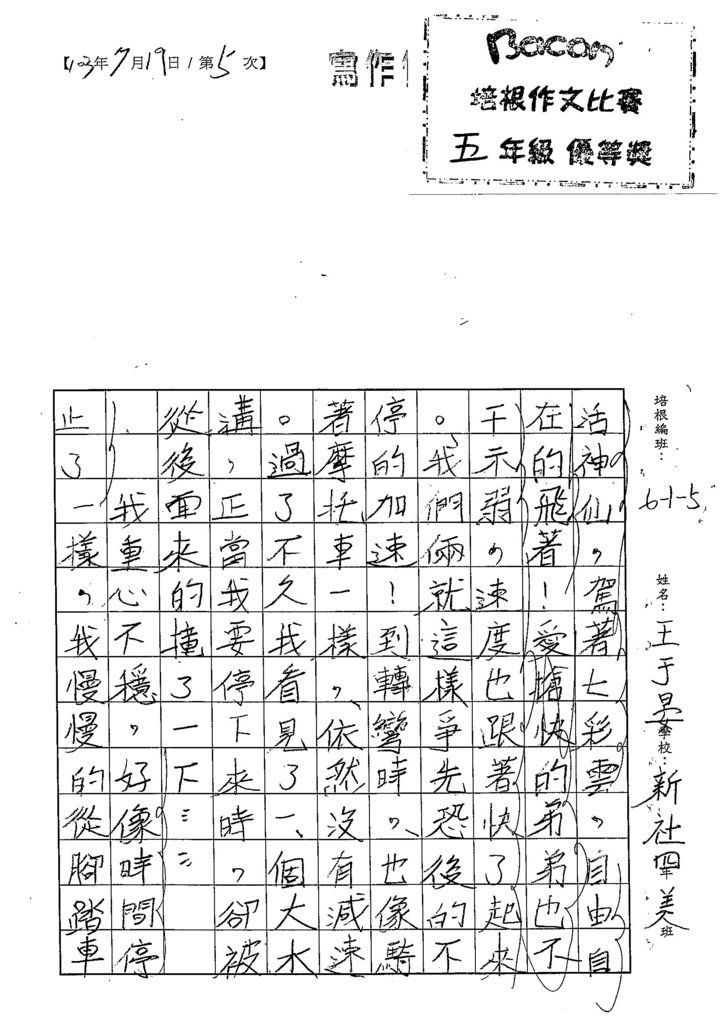 【103年7月19日/第5次】
寫作
Bacon
培根作文比賽
五年級 優等獎
培根編班：6-1-5
姓名：王于晏 學校：新社 班美
活神仙，駕著七彩雲，自由自
在的飛著！愛搶快的弟弟也不
干示弱，速度也跟著快了起來
。我們倆就這樣爭先恐後的不
停的加速！到轉彎時，也像騎
著摩托車一樣，依然沒有減速
。過了不久我看見了一個大水
溝，正當我要停下來時，卻被
從後面來的撞了一下……
，我重心不穩，好像時間停
止了一樣，我慢慢的從腳踏車